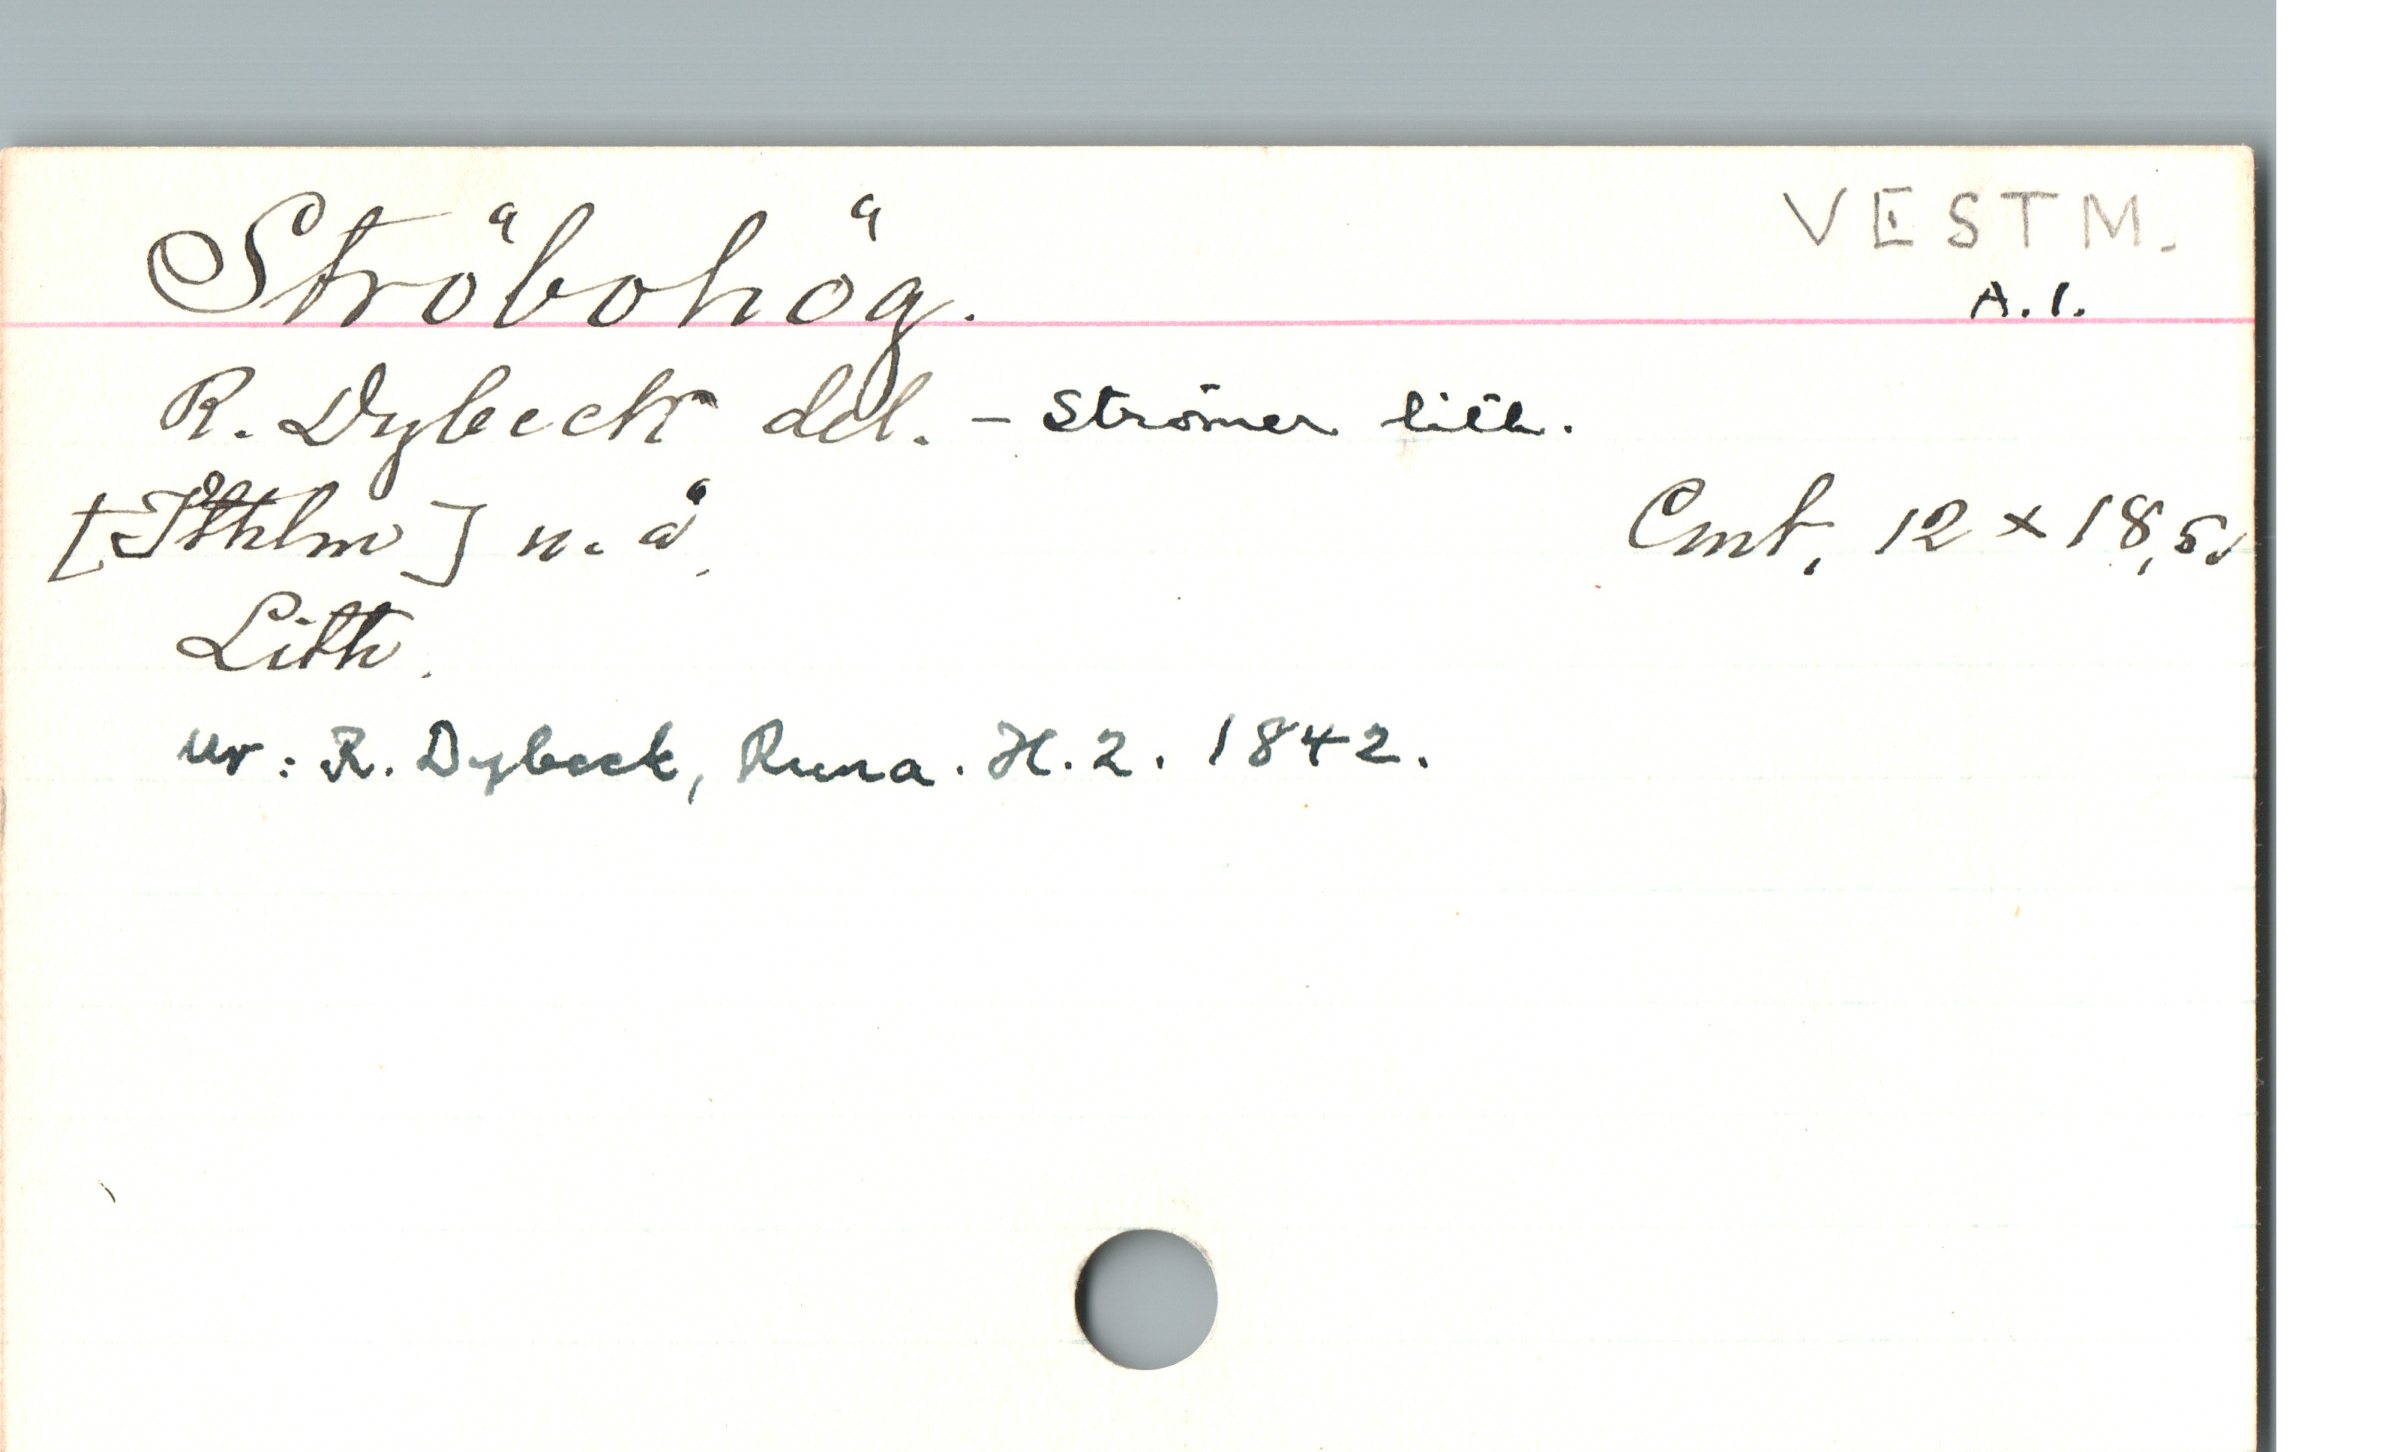 Ströbohög. VESTM.
A. 1.
R. Dybeck del. - Strömer lith.
[Sthlm] u. å. Cmt, 12 x 18,5.
Lith.
Ur: R. Dybeck, Runa. H. 2. 1842.